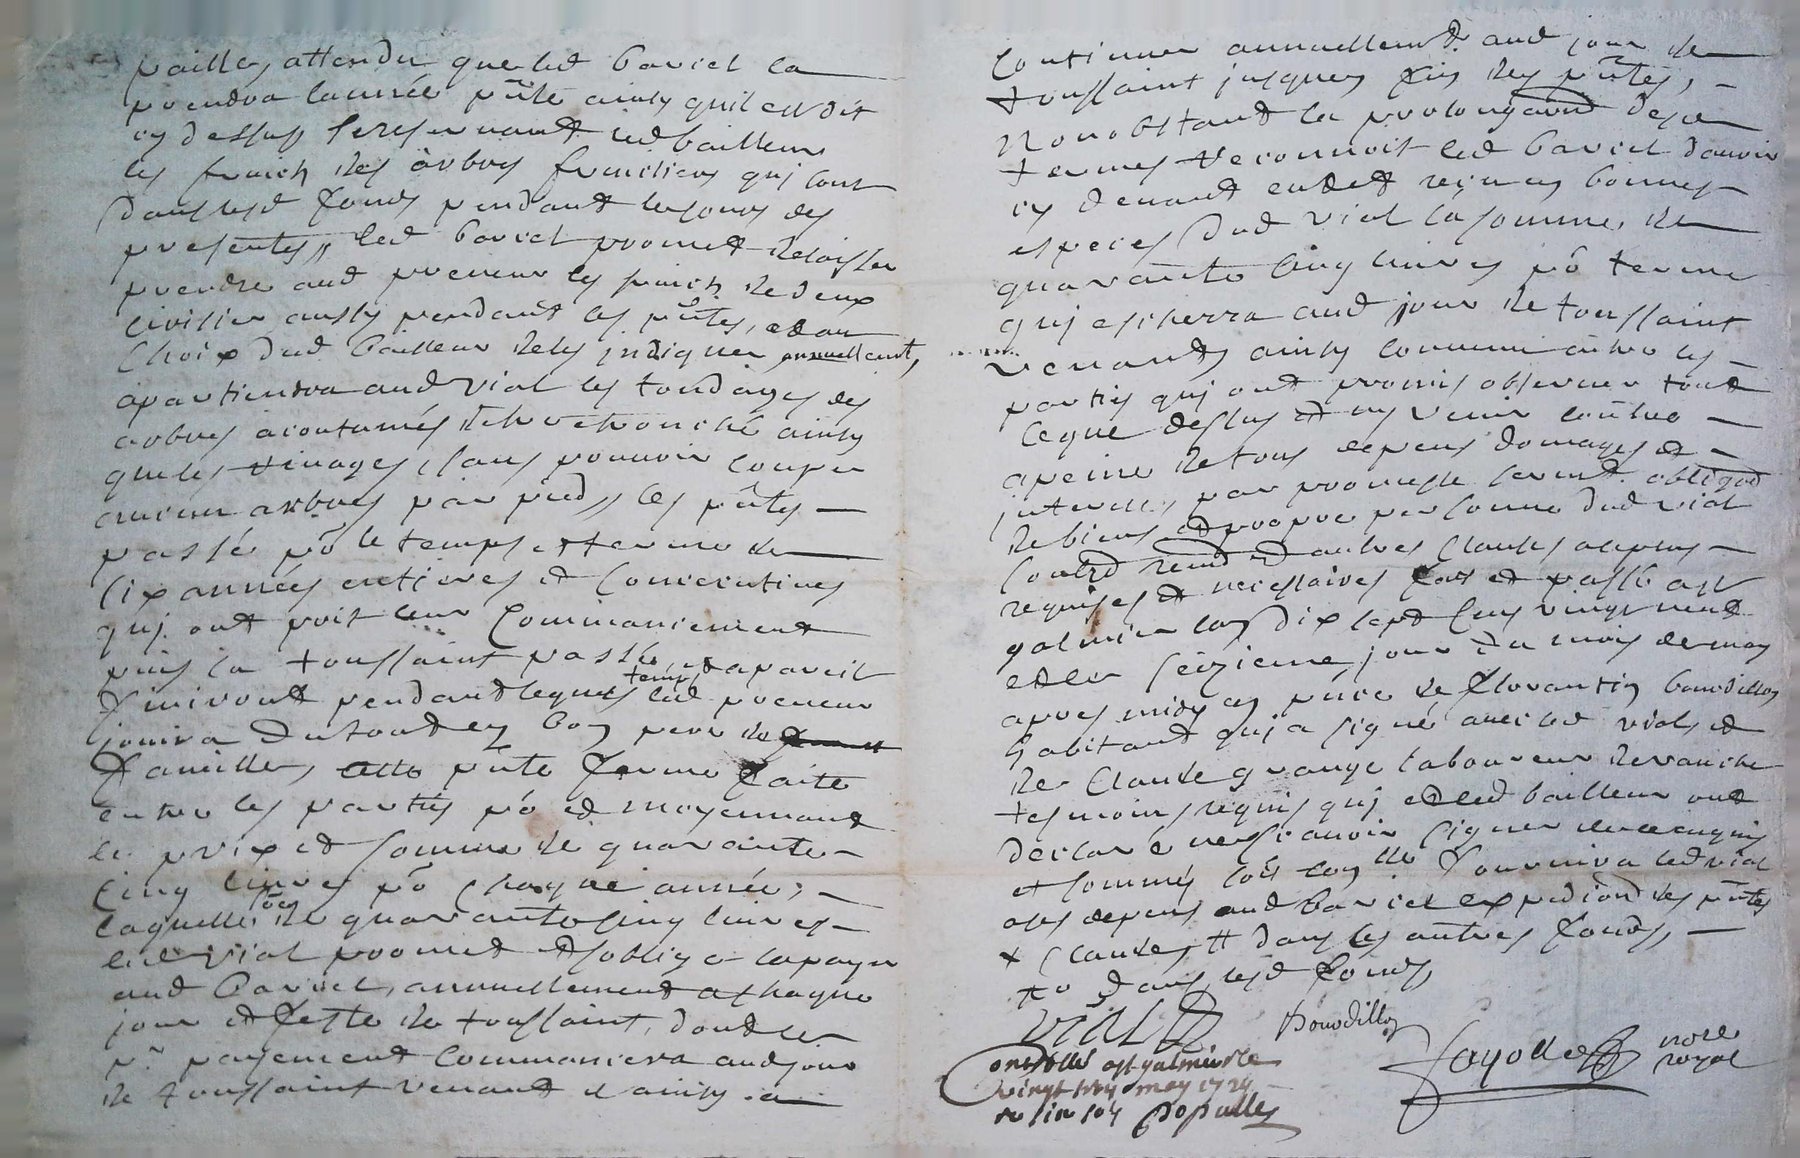 pailles, attendu que led Barict la
prendra lannée pnte ainsy quil est dit
cy dessus se reservant led bailleur
les fruich des arbres fruitiers qui sont
dans lesd fonds pendant le cours des
presentes, led Barict promet de laisser
prendre aud preneur les fruich de deux
cerisier ausy pendant les pntes, et au
choix dud bailleur de les jndiquer annuellemt,
apartiendra aud Vial les tondages des
arbres acoutumés detre retronché ainsy
que les vinages, sans pouvoir couper
aucun arbres par pied, les pntes
passé po le temps et terme de
six années entieres et consecutives
qui ont prit leur commancement
puis la toussaint passée, et a pareil
finiront pendant lequel temps led preneur
jouira du tout en bon pere de
famille, cette pnte ferme faite
entre les parties po et moyennant
le prix et somme de quarante
cinq livres po chaque année,
laquelle soe de quarante cinq livres
led Vial promet et soblige la payer
aud Barict, annuellement a chaque
jour et feste de toussaint, dont le
pr payement commancera aud jour
de toussaint venant et ainsy a
continuer annuellemt aud jour de
toussaint jusques fin des pntes,
nonobstant la prolongaon de ce
termes Reconnoit led Barict davoir
cy devant en det reçu en bonnes
especes dud Vial la somme de
quarante cinq livres po terme
qui escherra aud jour de toussaint
venant, ainsy convenu entre les
parties qui ont promis observer tout
ce que dessus et ny venir contre
a peine de tous depens domages et
jnterets, par promesse sermt obligaon
de biens et propre personne dud Vial
soubd renond et autres clauses a ce plus
requises et necessaires fait et passé a st
galmier lan dix sept cens vingt neuf
et le seizieme jour du mois de may
apres midy en pnce de florantin bourdillon
habitant qui a signé avec led vial, et
de Claude grange laboureur de ranche
tesmoins requis qui et led bailleur ont
declaré ne sçavoir signer de ce enquis
et sommés fournira led vial
a ses depens aud Barict expedion des pntes
+ clauses, # dans les autres fonds,
dans lesd fonds,
Vial
Bourdillon
Fayolle nore
royal
Controllé a st galmier le
vingt trois may 1729
Popalles